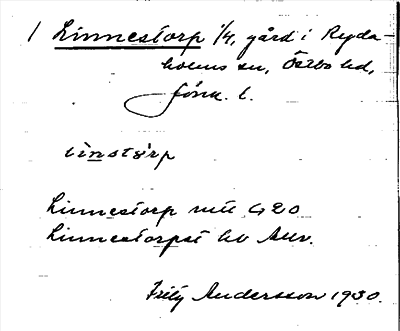 1 Linnestorp 1/4, gård i Ryda-
holms sn, Östbo hd,
Jönk. l.
linstörp
Linnestorp mtl G 20
Linnestorpet hv
Fritz Andersson 1930.